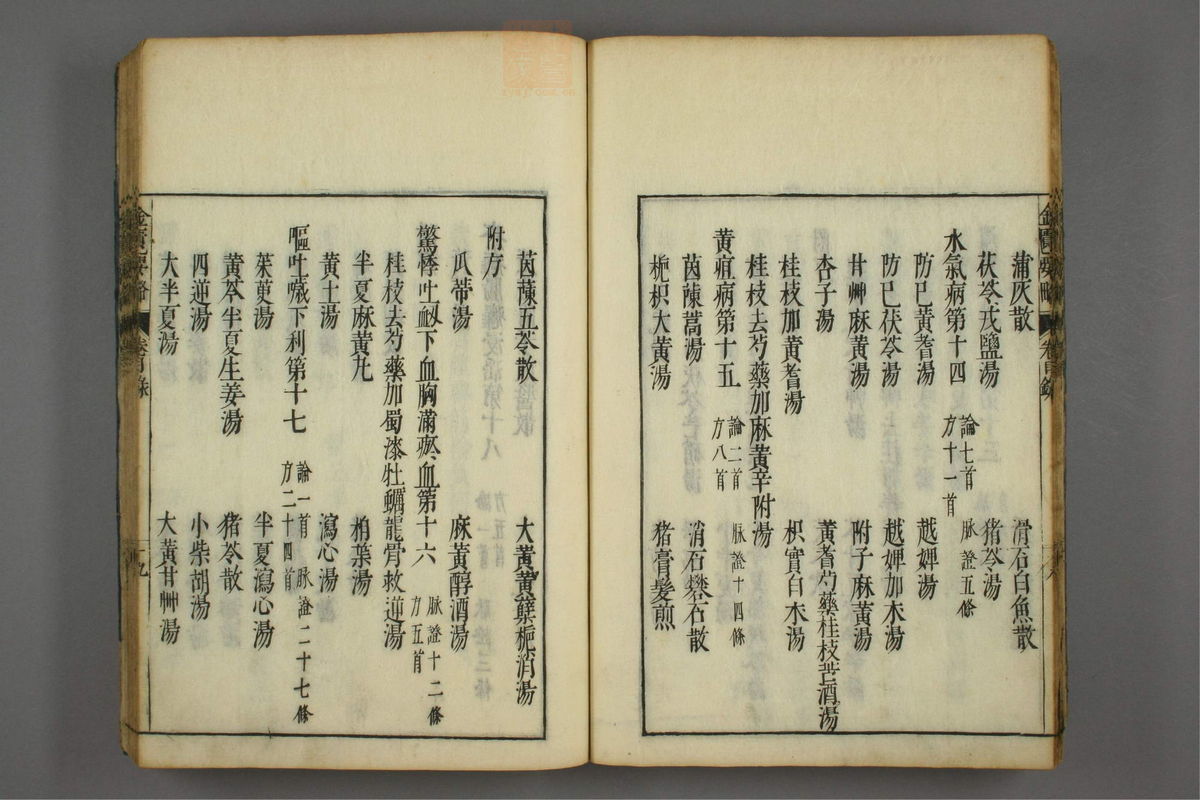 蒲灰散　滑石白魚散
茯苓戎鹽湯　猪苓湯
水氣病第十四　論七首　脉證五條　方十一首
防巳黃耆湯　越婢湯
防巳茯苓湯　越婢加朮湯
甘艸麻黃湯　附子麻黃湯
杏子湯　黃耆芍藥桂枝苦酒湯
桂枝加黃耆湯　枳實白朮湯
桂枝去芍藥加麻黃辛附湯
黃疸病第十五　論二首　脉證十四條　方八首
茵蔯蒿湯　消石礬石散
梔枳大黃湯　猪膏髮煎
金匱要略　卷目錄
茵蔯五苓散　大黃黃蘗梔消湯
附方
瓜蒂湯　麻黃醇酒湯
驚悸吐衂下血胸滿瘀血第十六　脉證十二條　方五首
桂枝去芍藥加蜀漆牡蠣龍骨救逆湯
半夏麻黃丸　栢葉湯
黃土湯　瀉心湯
嘔吐噦下利第十七　論一首　脉證二十七條　方二十四首
茱萸湯　半夏瀉心湯
黃芩半夏生姜湯　猪苓散
四逆湯　小柴胡湯
大半夏湯　大黃甘艸湯
金匱要略　卷目錄　九